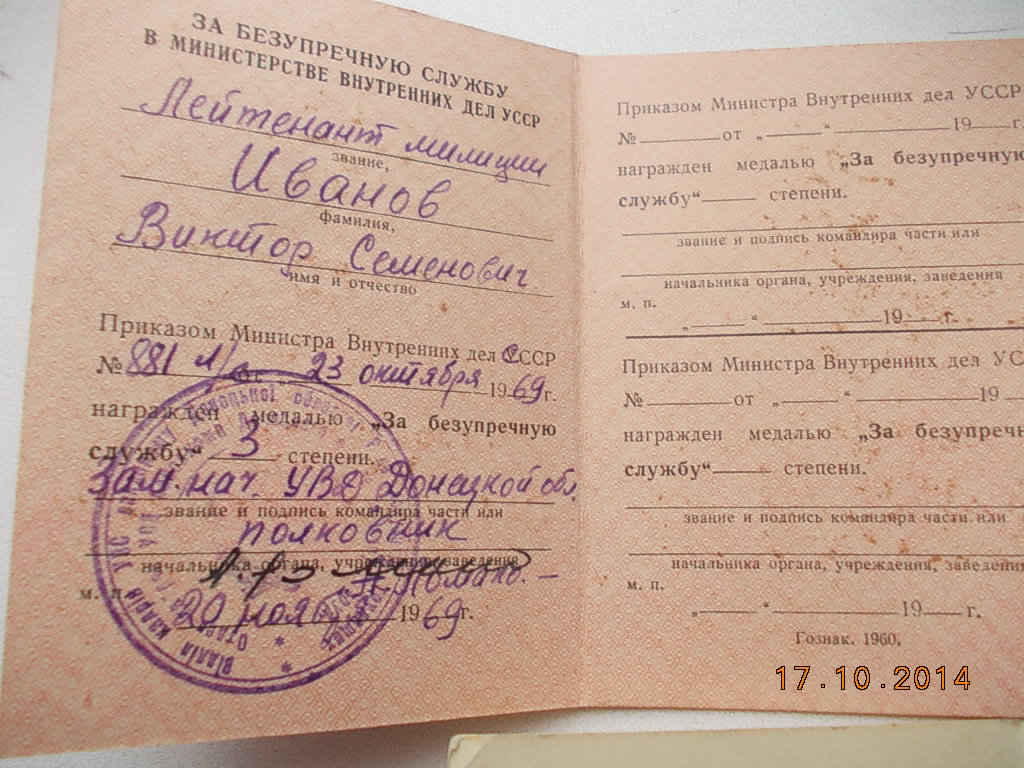 ЗА БЕЗУПРЕЧНУЮ СЛУЖБУ
В МИНИСТЕРСТВЕ ВНУТРЕННИХ ДЕЛ УССР
Лейтенант милиции
звание,
Иванов
фамилия,
Виктор Семенович
имя и отчество
Приказом Министра Внутренних дел СССР
№ 881 л/с от 23 октября 1969г.
награжден медалью „За безупречную
службу“ 3 степени.
Зам. нач. УВД Донецкой обл.
звание и подпись командира части или
полковник
начальника органа, учреждения, заведения
м. п.
20 ноя 1969г.
Відділ кадрів
Приказом Министра Внутренних дел УССР
№ от „ “ 19 г.
награжден медалью „За безупречную
службу“ степени.
звание и подпись командира части или
начальника органа, учреждения, заведения
м. п.
„ “ 19 г.
Приказом Министра Внутренних дел УС
№ от „ “ 19
награжден медалью „За безупречн
службу“ степени.
звание и подпись командира части или
начальника органа, учреждения, заведения
м. п.
„ “ 19 г.
Гознак. 1960.
17.10.2014